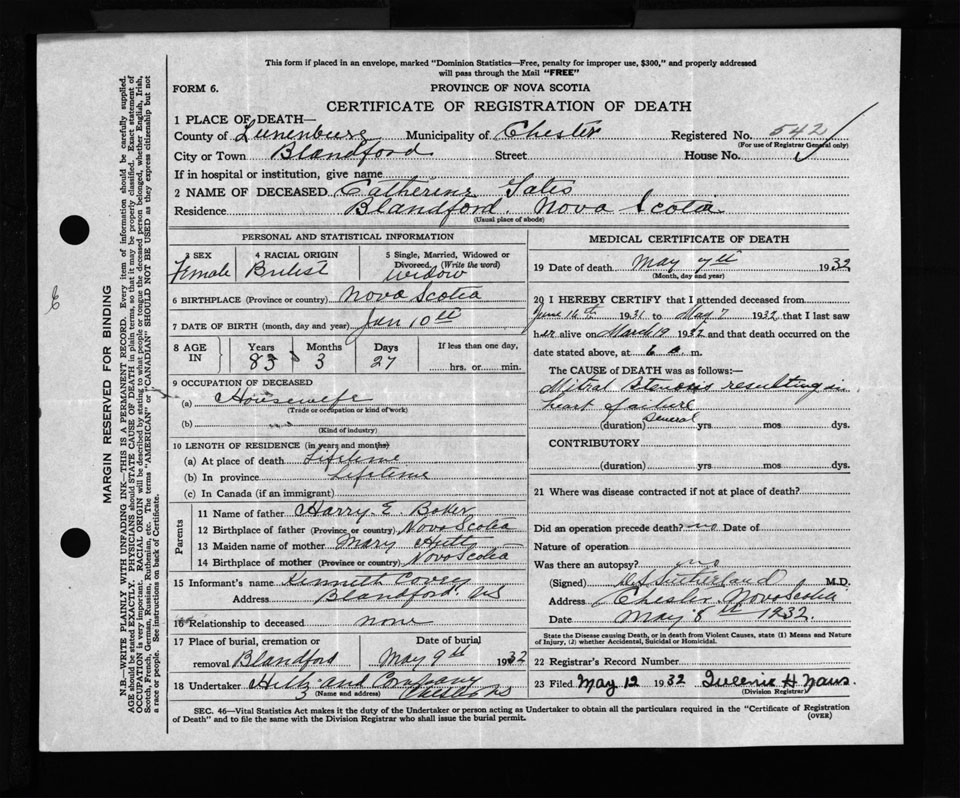 This form if placed in an envelope, marked "Dominion Statistics—Free, penalty for improper use, $300," and properly addressed
will pass through the Mail "FREE"
FORM 6.
PROVINCE OF NOVA SCOTIA
CERTIFICATE OF REGISTRATION OF DEATH
1 PLACE OF DEATH—
County of Lunenburg Municipality of Chester Registered No. 542
(For use of Registrar General only)
City or Town Blandford Street House No.
If in hospital or institution, give name
2 NAME OF DECEASED Catherine
Residence Blandford. Nova Scotia
(Usual place of abode)
PERSONAL AND STATISTICAL INFORMATION
3 SEX 4 RACIAL ORIGIN 5 Single, Married, Widowed or
Divorced. (Write the word)
Female British widow
6 BIRTHPLACE (Province or country) Nova Scotia
7 DATE OF BIRTH (month, day and year) Jan 10th
8 AGE IN Years Months Days If less than one day,
83 3 27 hrs. or min.
9 OCCUPATION OF DECEASED
(a) Housewife
(Trade or occupation or kind of work)
(b)
(Kind of industry)
10 LENGTH OF RESIDENCE (in years and months)
(a) At place of death Lifetime
(b) In province Lifetime
(c) In Canada (if an immigrant)
Parents
11 Name of father Harry E. Baker
12 Birthplace of father (Province or country) Nova Scotia
13 Maiden name of mother Mary
14 Birthplace of mother (Province or country) Nova Scotia
15 Informant's name Kenneth Covey
Address Blandford. NS
16 Relationship to deceased none
17 Place of burial, cremation or Date of burial
removal Blandford May 9th 1932
18 Undertaker Hiltz and Company
(Name and address) Chester NS
MEDICAL CERTIFICATE OF DEATH
19 Date of death May 7th 1932
(Month, day and year)
20 I HEREBY CERTIFY that I attended deceased from
June 16th 1931 to May 7 1932 that I last saw
her alive on March 19 1932 and that death occurred on
date stated above, at 6 a. m.
The CAUSE of DEATH was as follows:—
Mitral Stenosis resulting in
heart failure
(duration) several yrs mos dys.
CONTRIBUTORY
(duration) yrs. mos. dys.
21 Where was disease contracted if not at place of death?
Did an operation precede death? no Date of
Nature of operation
Was there an autopsy? no
(Signed) Sutherland M.D.
Address Chester Nova Scotia
Date May 8th 1932.
State the Disease causing Death, or in death from Violent Causes, state (1) Means and Nature
of Injury, (2) whether Accidental, Suicidal or Homicidal.
22 Registrar's Record Number
23 Filed May 12 1932 H Naus
(Division Registrar)
SEC. 46—Vital Statistics Act makes it the duty of the Undertaker or person acting as Undertaker to obtain all the particulars required in the "Certificate of Registration
of Death" and to file the same with the Division Registrar who shall issue the burial permit.
(OVER)
MARGIN RESERVED FOR BINDING
N.B.—WRITE PLAINLY WITH UNFADING INK—THIS IS A PERMANENT RECORD. Every item of information should be carefully supplied.
AGE should be stated EXACTLY. PHYSICIANS should STATE CAUSE OF DEATH in plain terms, so that it may be properly classified. Exact statement of
OCCUPATION is very important. RACIAL ORIGIN will be described by stating to what people or tongue the deceased person belonged, whether English, Irish,
Scotch, French, German, Russian, Ruthenian, etc. The terms "AMERICAN" or "CANADIAN" SHOULD NOT BE USED as they express citizenship but not
a race or people. See instructions on back of Certificate.